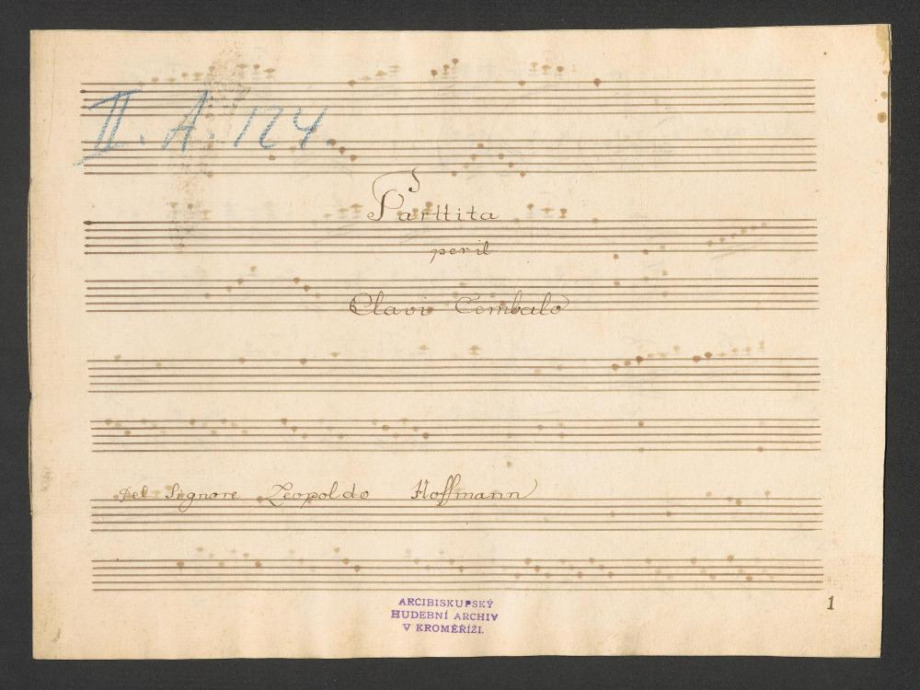 II. A. 124.
Parttita
per il
Clavi Cembalo
Del Signore Leopoldo Hoffmann
ARCIBISKUPSKÝ
HUDEBNÍ ARCHIV
V KROMĚŘÍŽI.
1